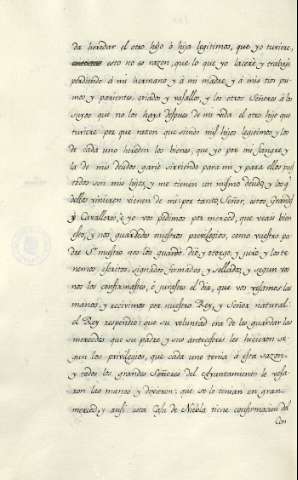 da heredar el otro hijo ó hija legitimos, que yo tuviere,
esto no es razon, que lo que yo lacere, y trabaje
perdiendo á mi hermano, y á mi madre, y á mis tios pri
mos y parientes, criados y vasallos, y los otros Señores á los
suyos que no los haya despues de mi vida el otro hijo que
tuviere por que razon que ambos mis hijos legitimos, y los
de cada uno hereden los bienes que yo por mi sangre, y
la de mis deudos gané sirviendo para mi y para ellos, pues
todos son mis hijos, y me tienen un mismo deudo, y los q
dellos vinieren vienen de mi: por tanto, Señor, estos Grandes
y Cavalleros, é yo vos pedimos por merced, que veais bien
esto, y nos guardedes nuestros previlegios, como vuestro pa
dre Sr. nuestro nos los guardó, dió, y otorgó, y juró, y los te
nemos escritos, signados, firmados, y sellados, y segun vos
nos los confirmastes, é jurastes el dia, que vos vesamos las
manos, y recivimos por nuestro Rey, y Señor natural:
el Rey respondió: que su voluntad era de les guardar las
mercedes que su padre, y sus antecesores les hicieron se
gun los privilegios, que cada uno tenia á esta sazon:
y todos los grandes Señores del Ayuntamiento le vesa
ron las manos, y dixeron: que se lo tenian en gran
merced, y ansi esta Casa de Niebla tiene confirmacion del
Con